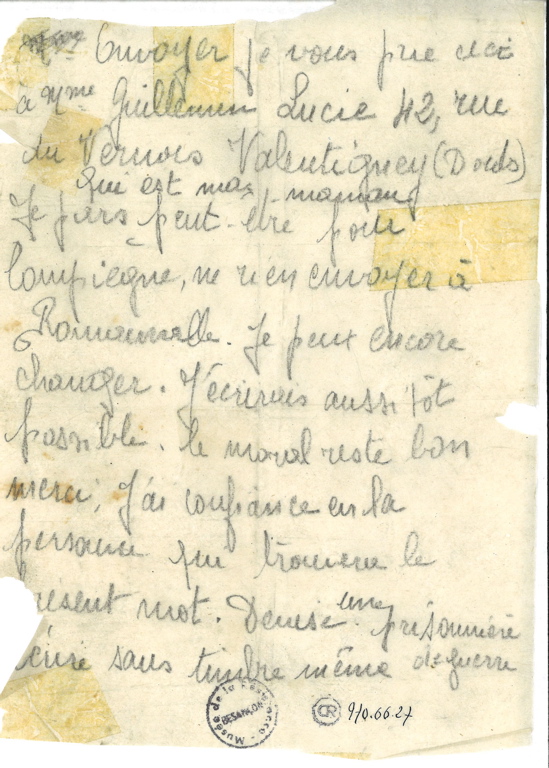 Envoyer je vous prie ceci
à Mme Guillemin Lucie 42, rue
du Vernois Valentigney (Doubs)
qui est ma maman
Je pars peut-être pour
Compiègne, ne rien envoyer à
Romainville. Je peux encore
changer. J'écrirais aussitôt
possible. le moral reste bon
merci, J'ai confiance en la
personne qui trouvera le
présent mot. Denise une prisonnière
écrire sans timbre même de guerre
Musée de la Résistance - BESANÇON
CR 910.66.27